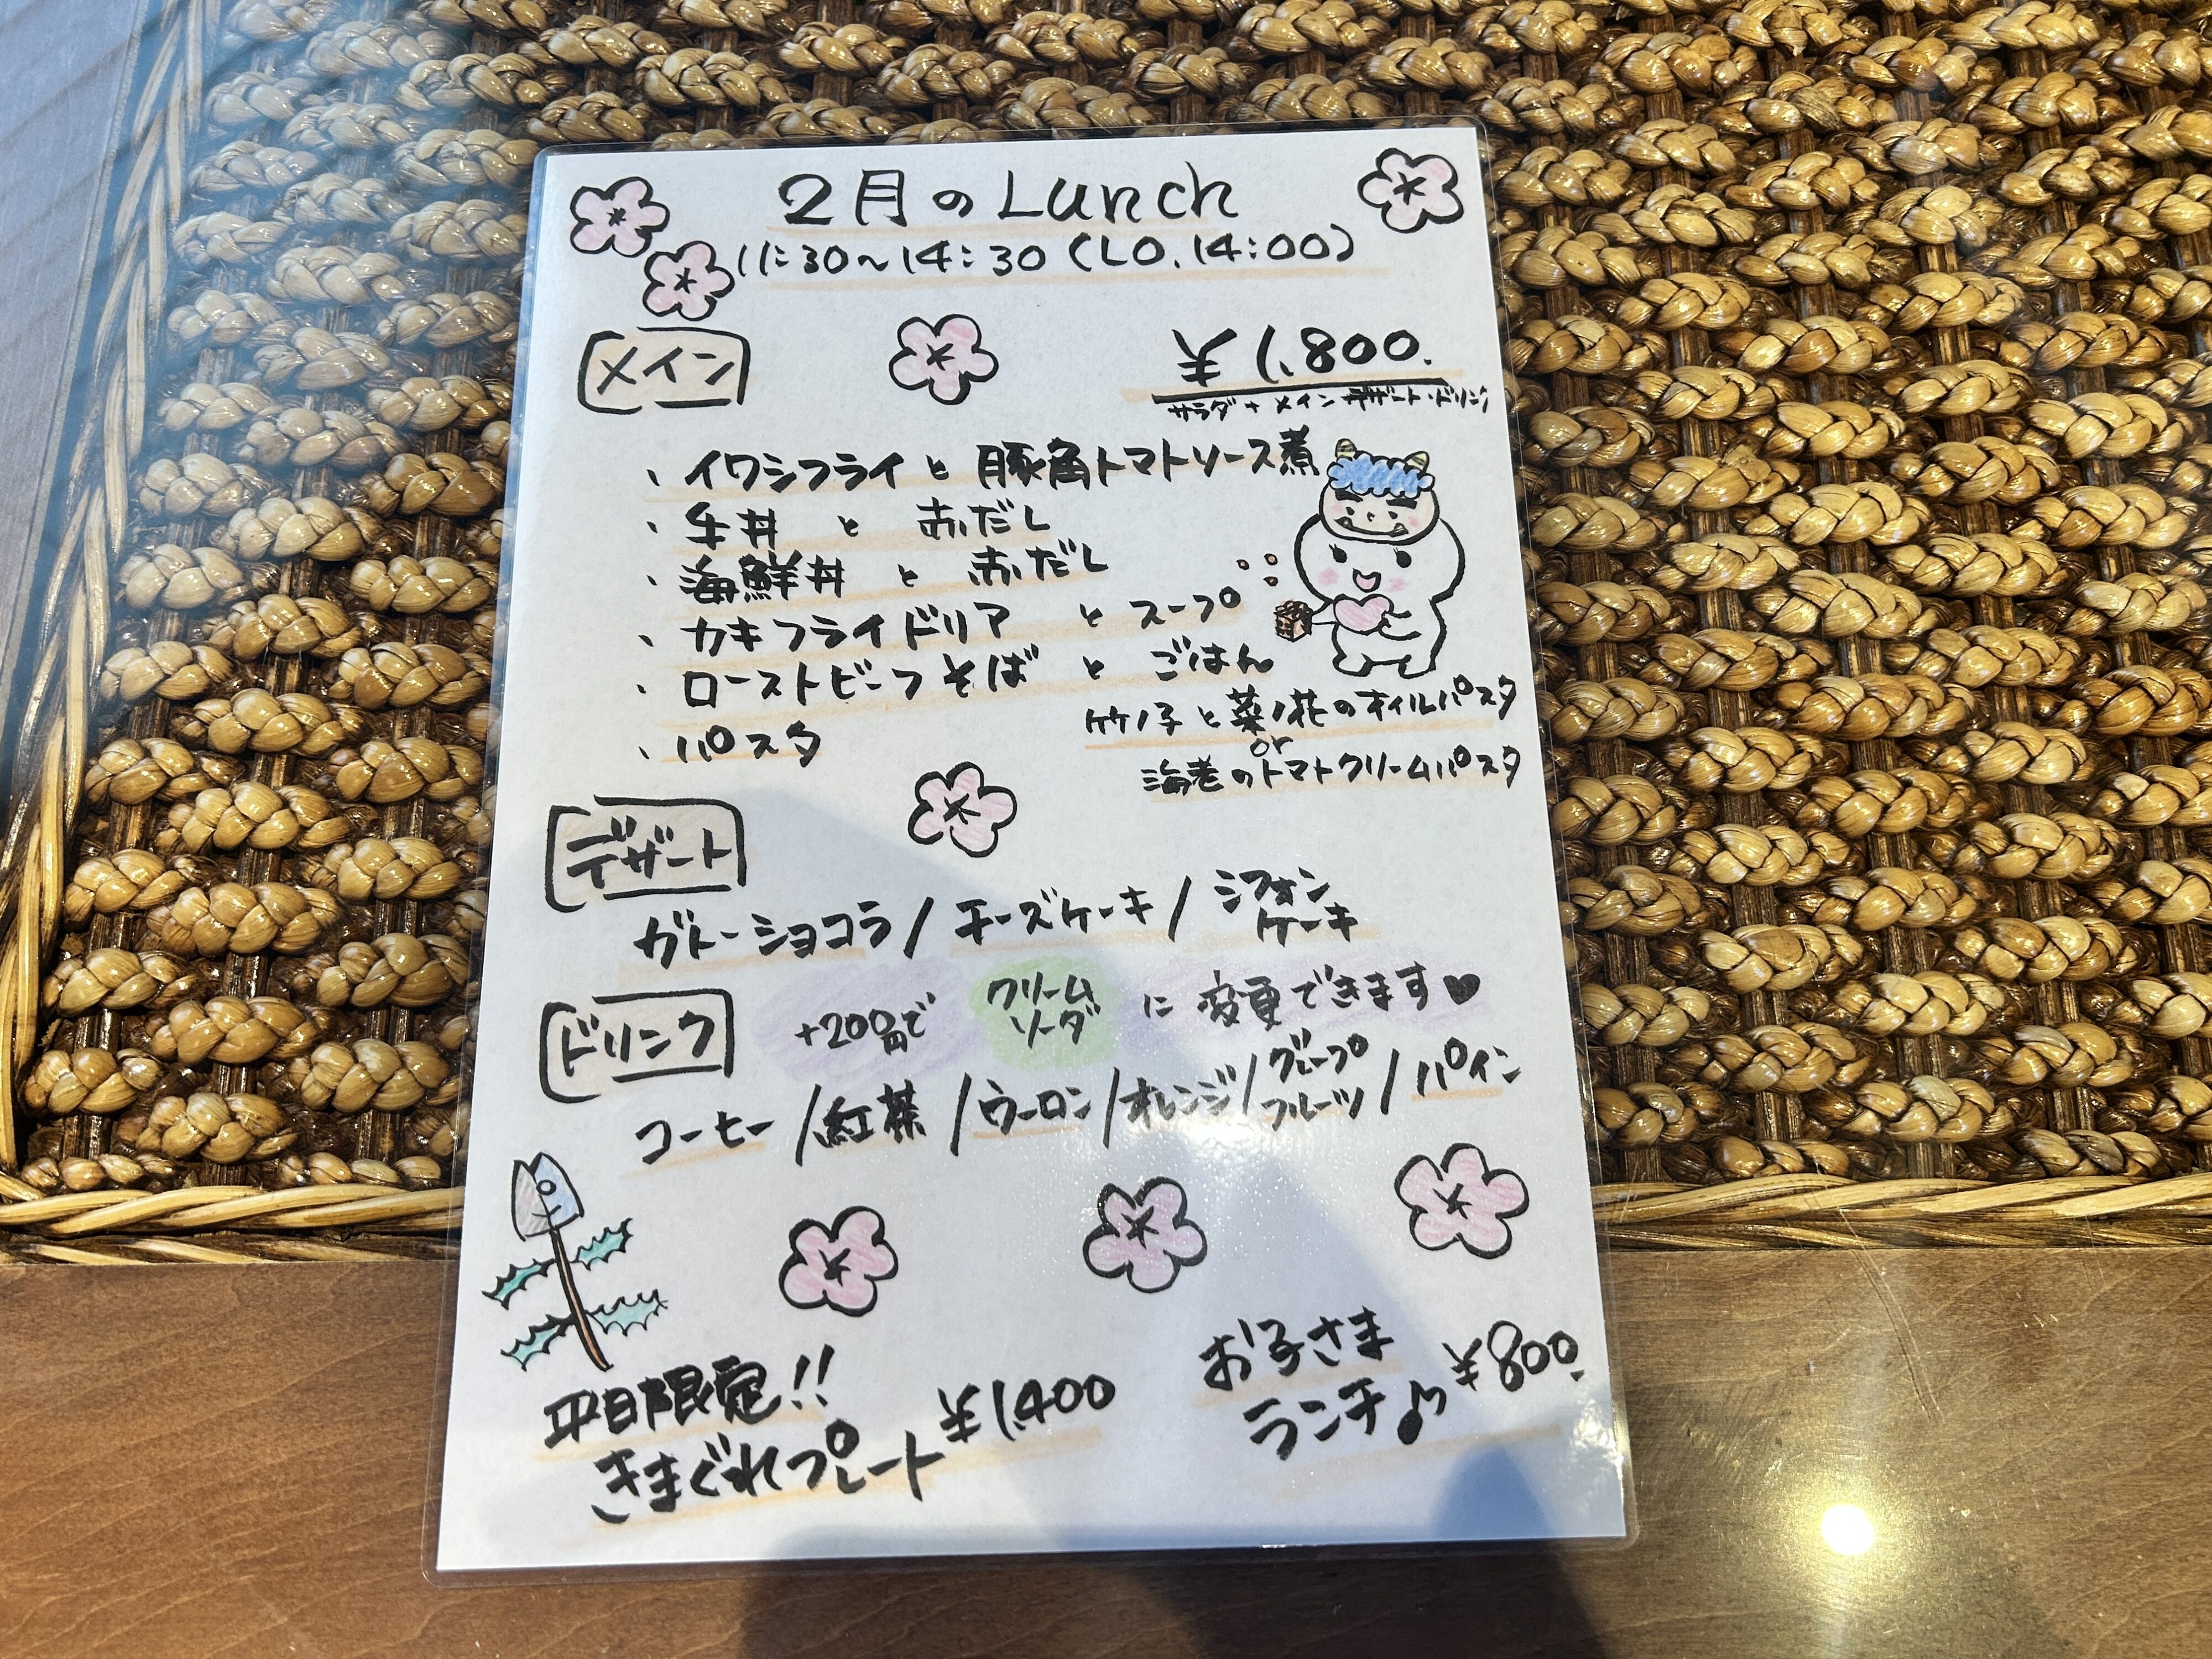 2月のLunch
11:30〜14:30 (LO.14:00)
メイン
¥1,800.
サラダ + メイン デザート・ドリンク
、イワシフライと豚角トマトソース煮
、牛丼 と おだし
、海鮮丼 と おだし
、カキフライドリア と スープ
、ローストビーフそば と ごはん
、パスタ
竹ノ子と菜ノ花のオイルパスタ
or
海老のトマトクリームパスタ
デザート
ガトーショコラ/チーズケーキ/シフォンケーキ
ドリンク
+200円で クリームソーダ に変更できます♥
コーヒー/紅茶/ウーロン/オレンジ/グレープフルーツ/パイン
平日限定!!
きまぐれプレート ¥1,400
お子さま
ランチ♪ ¥800.